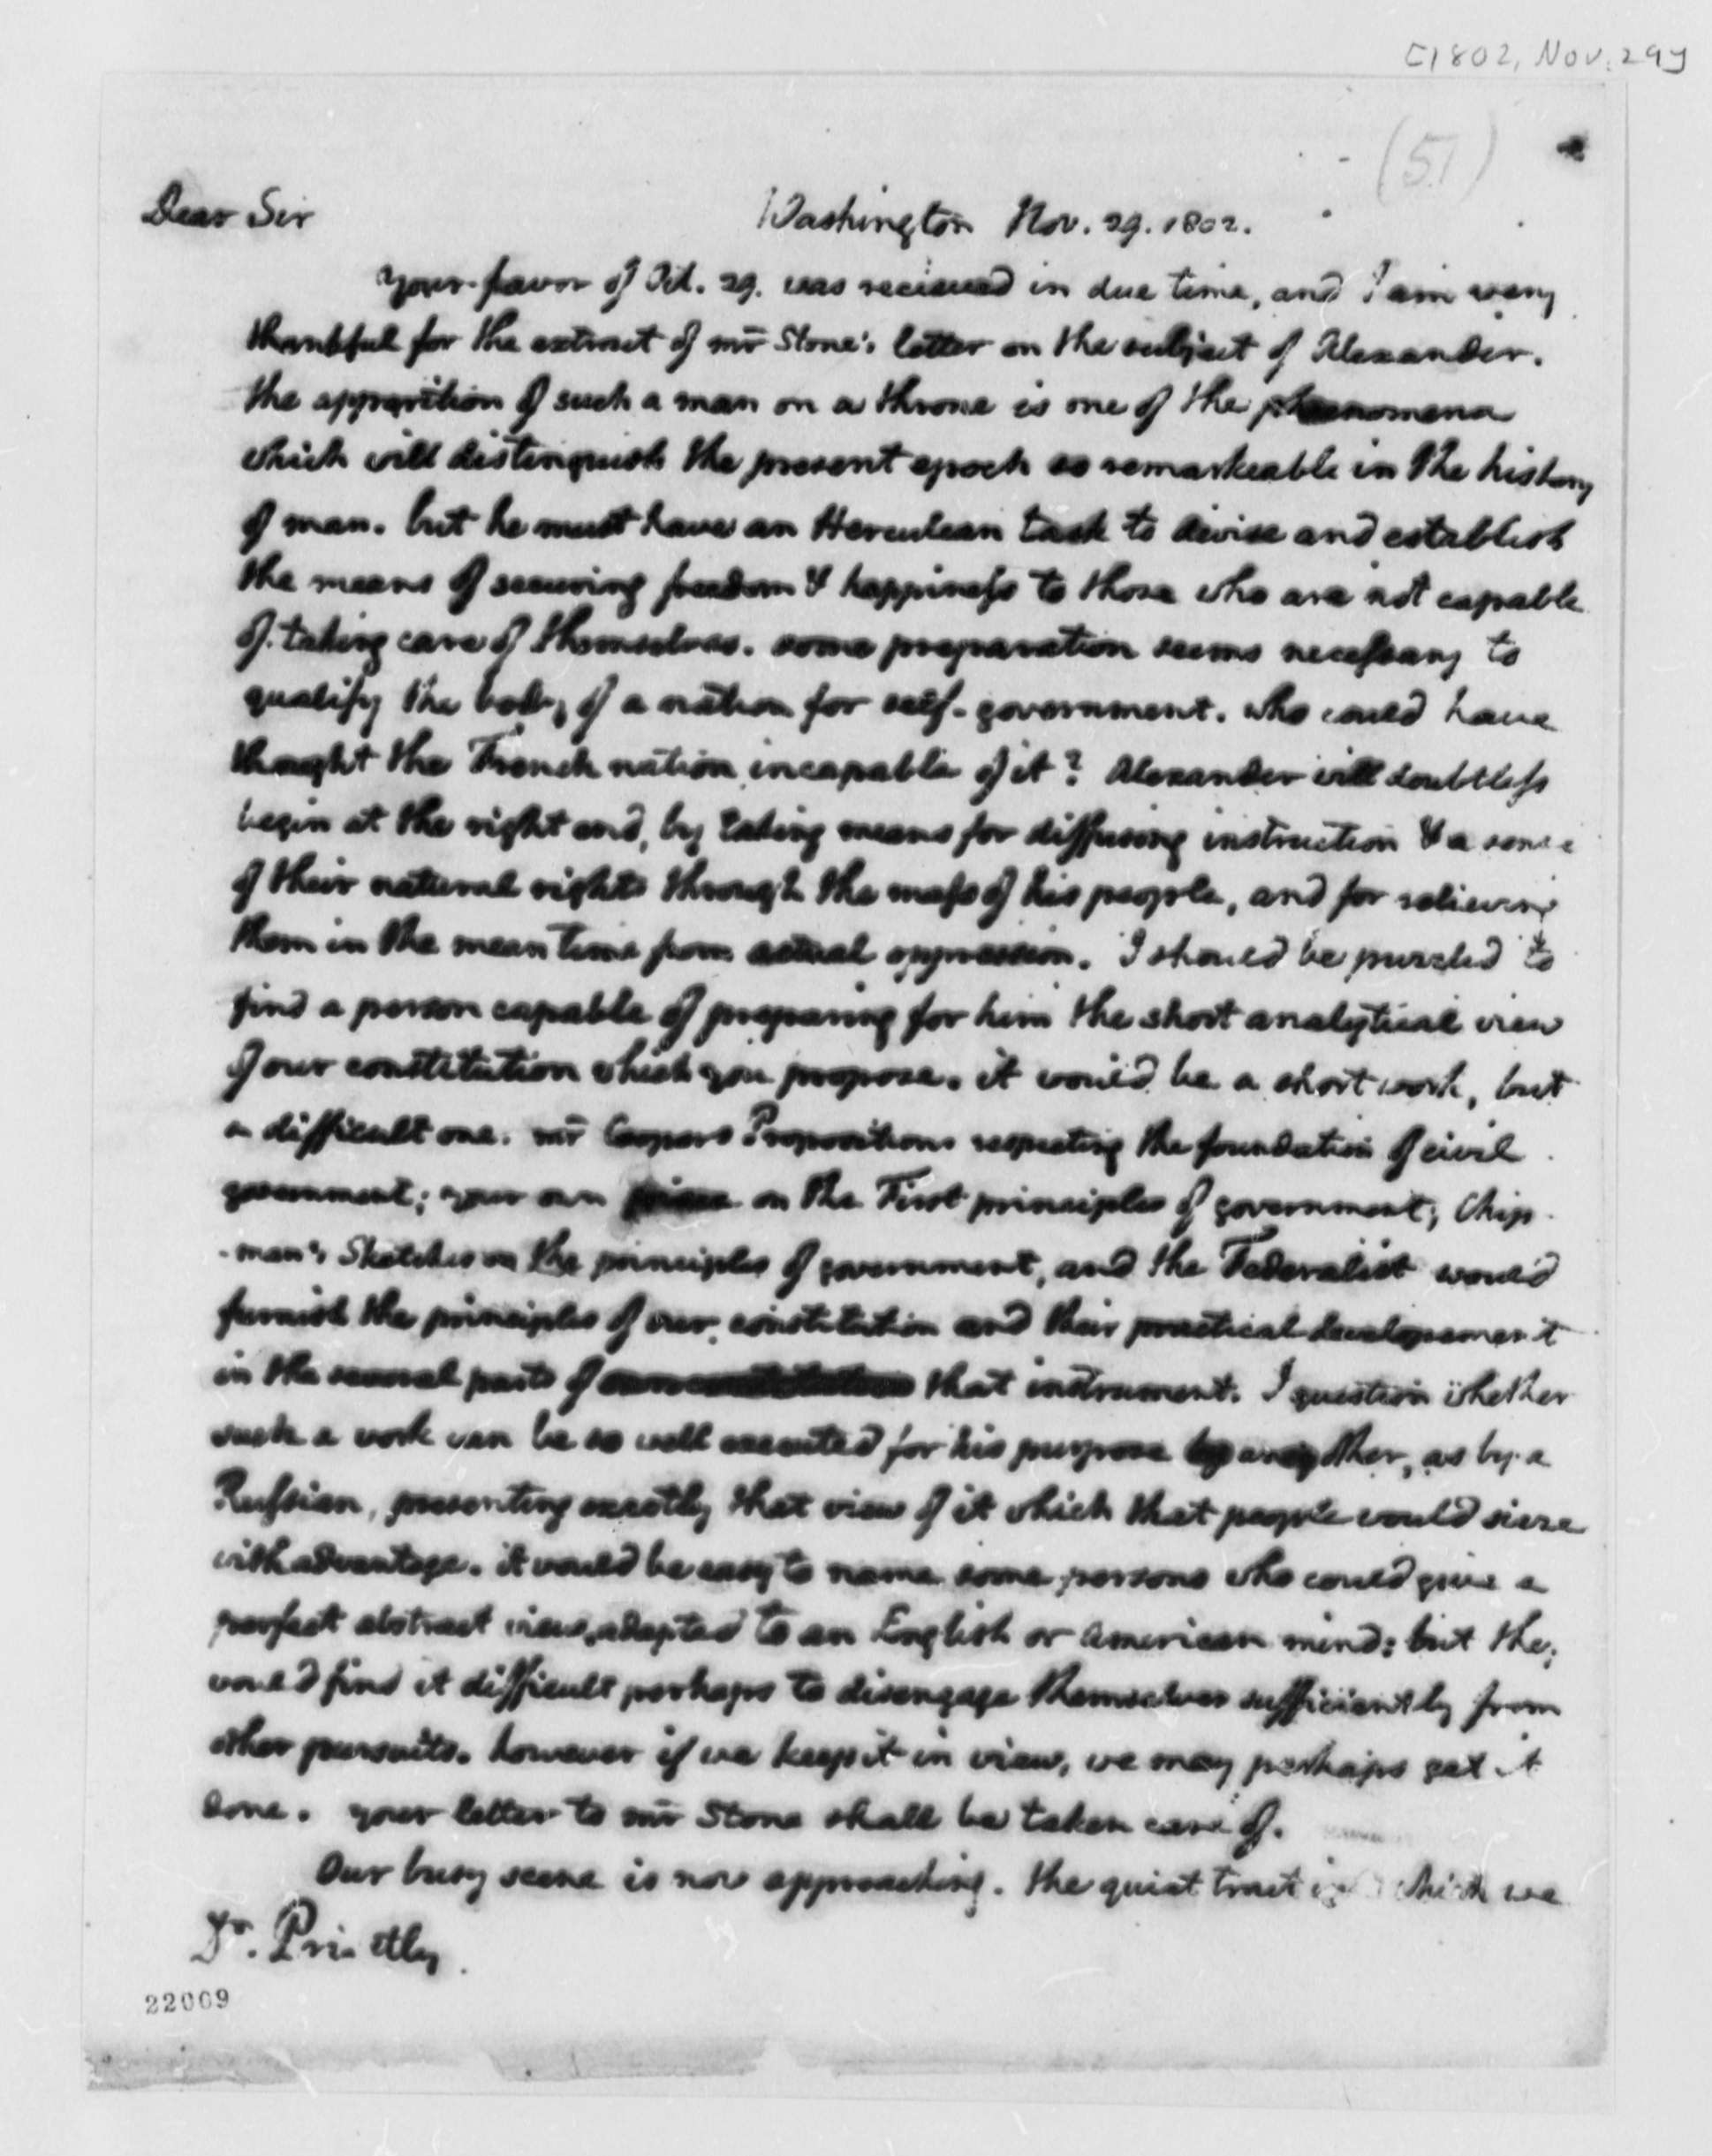 [1802, Nov. 29]
(51)
Dear Sir
Washington Nov. 29. 1802.
Your favor of Oct. 29. was recieved in due time, and I am very
thankful for the extract of mr Stone's letter on the subject of Alexander.
the apparition of such a man on a throne is one of the phaenomena
which will distinguish the present epoch so remarkeable in the history
of man. but he must have an Herculean task to devise and establish
the means of securing freedom & happiness to those who are not capable
of taking care of themselves. some preparation seems necessary to
qualify the body of a nation for self-government. who could have
thought the French nation incapable of it? Alexander will doubtless
begin at the right end, by taking means for diffusing instruction & a sense
of their natural rights through the mass of his people, and for relieving
them in the mean time from actual oppression. I should be puzzled to
find a person capable of preparing for him the short analytical view
of our constitution which you propose. it would be a short work, but
a difficult one. mr Cooper's Propositions respecting the foundation of civil
government; your own piece on the First principles of government; Chip-
-man's Sketches on the principles of government, and the Federalist would
furnish the principles of our constitution and their practical developement
in the several parts of that instrument. I question whether
such a work can be so well executed for his purpose by any other, as by a
Russian, presenting exactly that view of it which that people would sieze
with advantage. it would be easy to name some persons who could give a
perfect abstract view, adapted to an English or American mind: but they
would find it difficult perhaps to disengage themselves sufficiently from
other pursuits. however if we keep it in view, we may perhaps get it
done. your letter to mr Stone shall be taken care of.
Our busy scene is now approaching. the quiet tract in which we
Dr. Priestley
22009